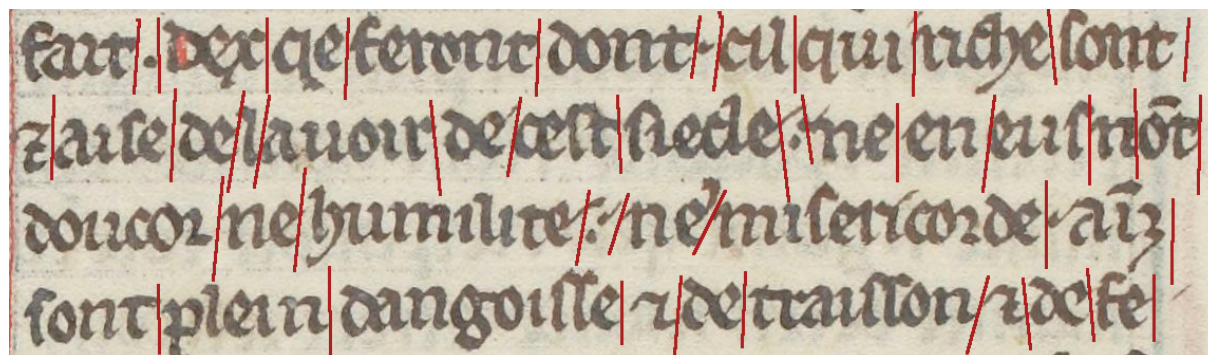 fait . dex qe feront dont · cil qui riche sont
⁊ aise de s auoir de cest siecle · ne en eus n ōt
doucor ne humilite · ne misericorde · aīz
sont plein dangoisse ⁊ de traisson ⁊ de fe